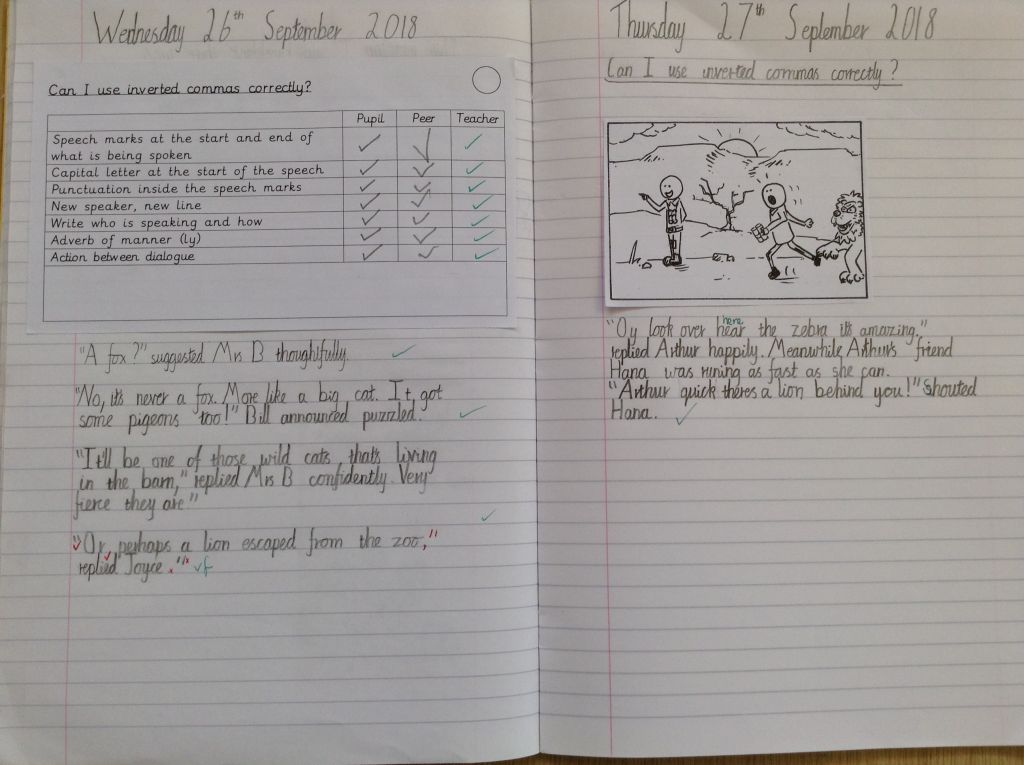 Wednesday 26th September 2018
Can I use inverted commas correctly?
Pupil Peer Teacher
Speech marks at the start and end of
what is being spoken
Capital letter at the start of the speech
Punctuation inside the speech marks
New speaker, new line
Write who is speaking and how
Adverb of manner (ly)
Action between dialogue
"A fox?" suggested Mrs B thoughtfully.
"No, it's never a fox. More like a big cat. It, got
some pigeons too!" Bill announced puzzled.
"It'll be one of those wild cats that's living
in the barn," replied Mrs B confidently. Very
fierce they are."
"Or, perhaps a lion escaped from the zoo,"
replied Joyce."
Thursday 27th September 2018
Can I use inverted commas correctly?
here
"Oy look over hear the zebra it's amazing,"
replied Arthur happily. Meanwhile Arthurs friend
Hana was runing as fast as she can.
"Arthur quick theres a lion behind you!" Shouted
Hana.